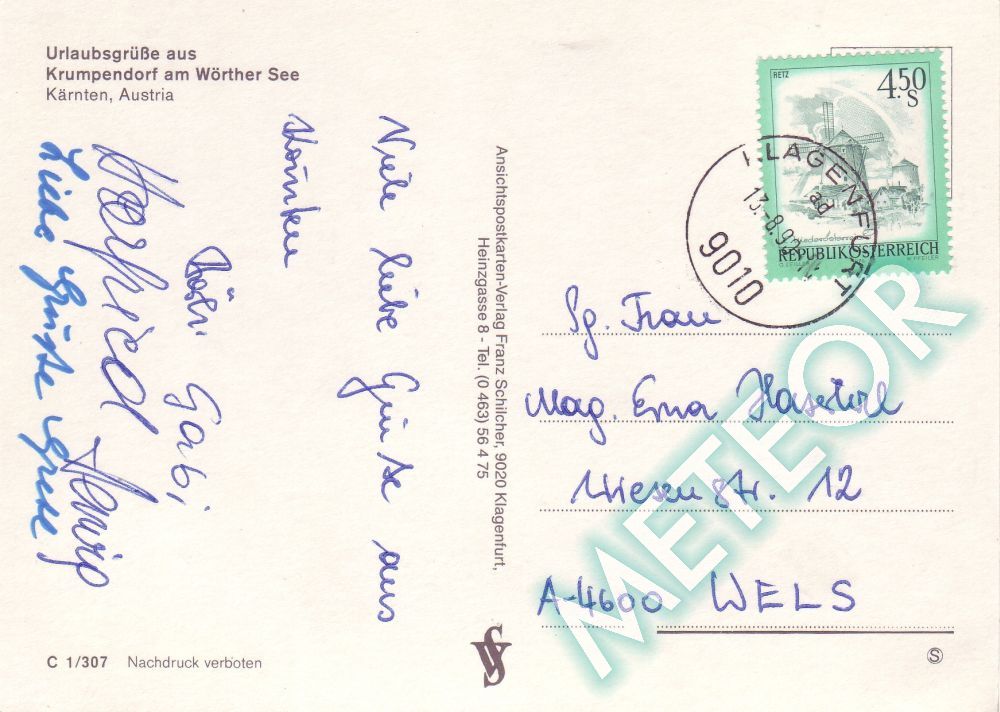 Urlaubsgrüße aus
Krumpendorf am Wörther See
Kärnten, Austria
Viele liebe Grüße aus
Kärnten
Gabi
Herwig
Liebe Grüße
C 1/307 Nachdruck verboten
Ansichtspostkarten-Verlag Franz Schilcher, 9020 Klagenfurt,
Heinzgasse 8 - Tel. (0 463) 56 4 75
RETZ
4.50
S
REPUBLIK ÖSTERREICH
KLAGENFURT
13.-8.92
ad
9010
Sg. Frau
Mag. Erna
Wiesenstr. 12
A-4600 WELS
METEOR
S